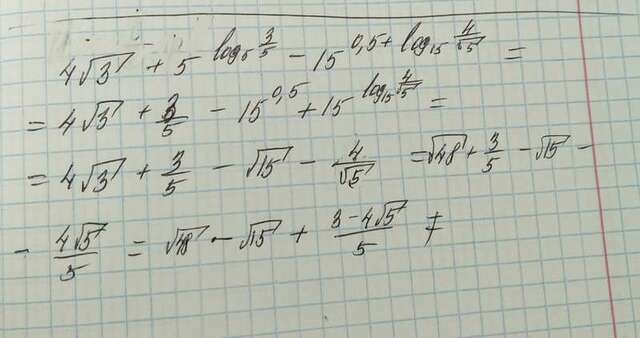 4√3 + 5^(log₅ 3/5) − 15^(0,5 + log₁₅ 4/√5) =
= 4√3 + 3/5 − 15^(0,5) + 15^(log₁₅ 4/√5) =
= 4√3 + 3/5 − √15 − 4/√5 = √48 + 3/5 − √15 −
− 4√5/5 = √48 − √15 + (3 − 4√5)/5